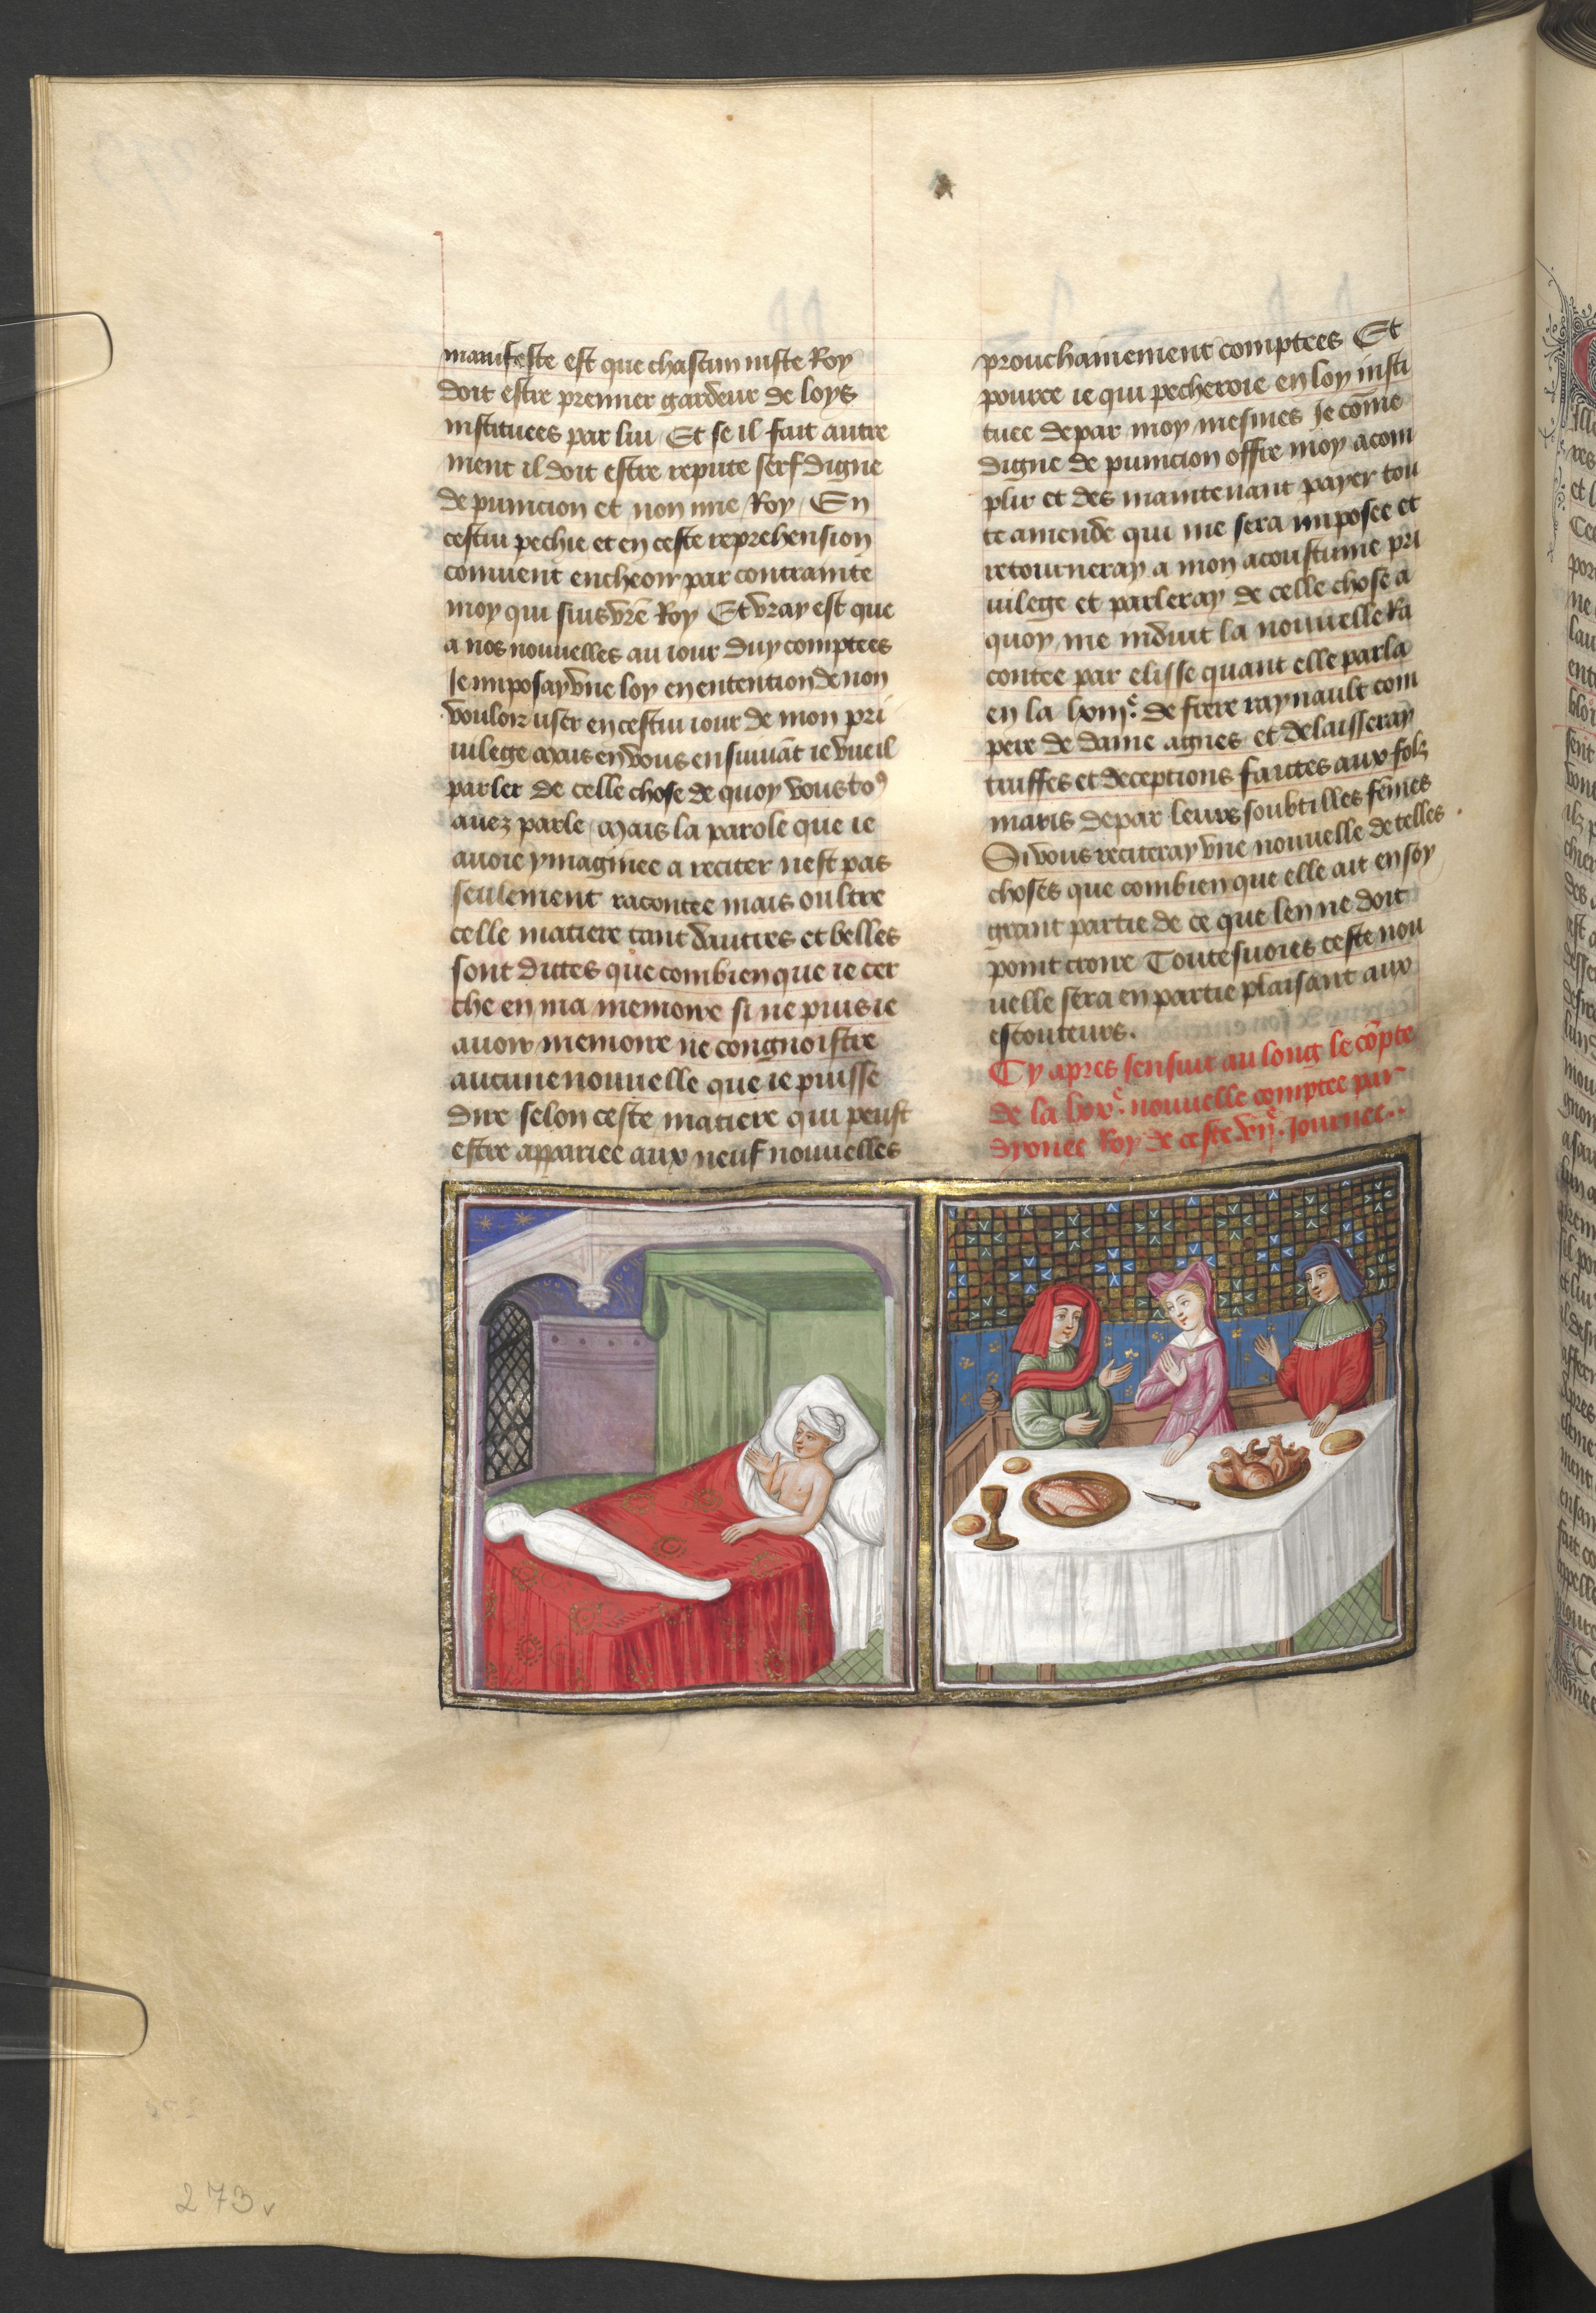 manifeste est que chascun iuste Roy
doit estre premier gardeur de loys
instituees par lui Et se il fait autre
ment il doit estre repute serf digne
de punicion et non mie Roy En
cestui pechie et en ceste reprehension
conuient encheoir par contrainte
moy qui suis vre Roy Et vray est que
a nos nouuelles au iour duy comptees
Je imposay vne loy en entention de non
vouloir user en cestui iour de mon pri
uilege mais en vous ensuiuāt ie vueil
parler de celle chose de quoy vous toꝰ
auez parle mais la parole que ie
auoie ymaginee a reciter nest pas
seulement racontee mais oultre
celle matiere tant dautres et belles
sont dittes que combien que ie cer
che en ma memoire si ne puis ie
auoir memoire ne congnoistre
aucune nouuelle que ie puisse
dire selon ceste matiere qui peust
estre appariee aux neuf nouuelles
prouchainement comptees Et
pource ie qui pecheroie en loy insti
tuee depar moy mesmes Je cōme
digne de punicion offre moy acom
plir et des maintenant payer tou
te amende qui me sera imposee et
retourneray a mon acoustume pri
uilege et parleray de celle chose a
quoy me induit la nouuelle Ra
contee par elisse quant elle parla
en la lxiijᵉ. de frere raynault com
pere de dame agnes et delaisseray
truffes et deceptions faictes aux folz
maris depar leurs soubtilles fēmes
Si vous reciteray vne nouuelle de telles
choses que combien que elle ait en soy
grant partie de ce que len ne doit
point croire Toutesuoies ceste nou
uelle sera en partie plaisant aux
escouteurs.
Cy apres sensuit au long le cōpte
de la lxxᵉ. nouuelle comptee par
dyonee Roy de ceste vijᵉ. Journee..
273v